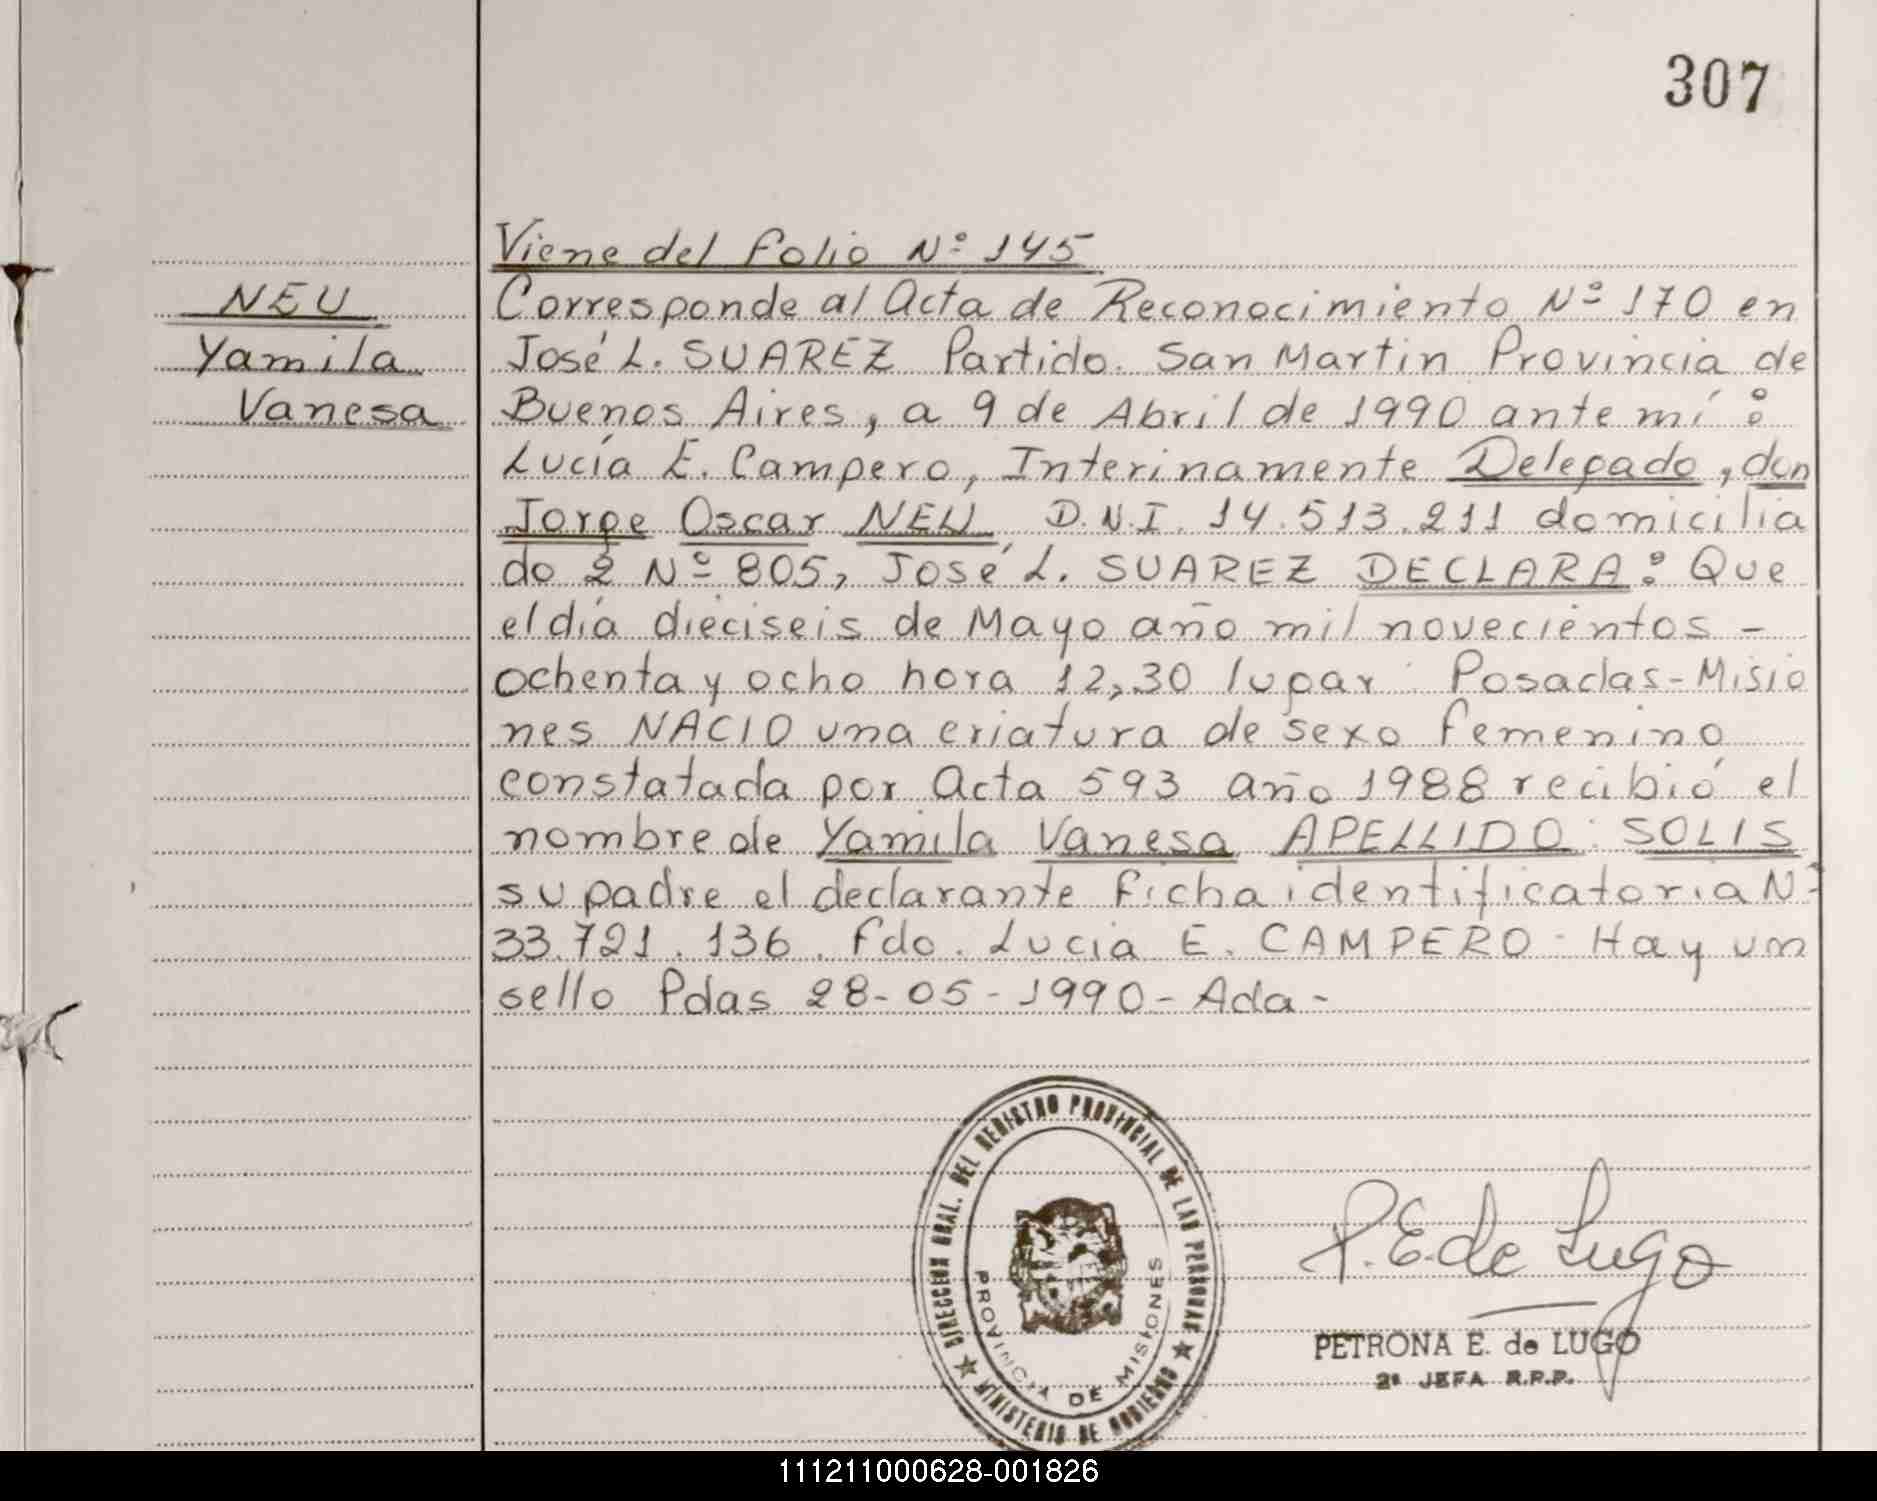 307
Viene del folio Nº 145
NEU
Yamila
Vanesa
Corresponde al Acta de Reconocimiento Nº 170 en
José L. SUAREZ Partido. San Martin Provincia de
Buenos Aires, a 9 de Abril de 1990 ante mí:
Lucía E. Campero, Interinamente Delegado, don
Jorge Oscar NEU D.N.I. 14.513.211 domicilia
do 2 Nº 805, José L. SUAREZ DECLARA: Que
el día dieciseis de Mayo año mil novecientos -
ochenta y ocho hora 12,30 lugar Posadas-Misio
nes NACIO una criatura de sexo femenino
constatada por Acta 593 año 1988 recibió el
nombre de Yamila Vanesa APELLIDO: SOLIS
su padre el declarante Ficha identificatoria Nº
33.721.136. Fdo. Lucia E. CAMPERO - Hay un
sello Pdas 28-05-1990-Ada-
DIRECCION GRAL. DEL REGISTRO PROVINCIAL DE LAS PERSONAS
MINISTERIO DE GOBIERNO
PROVINCIA DE MISIONES
P. E. de Lugo
PETRONA E. de LUGO
2ª JEFA R.P.P.
111211000628-001826